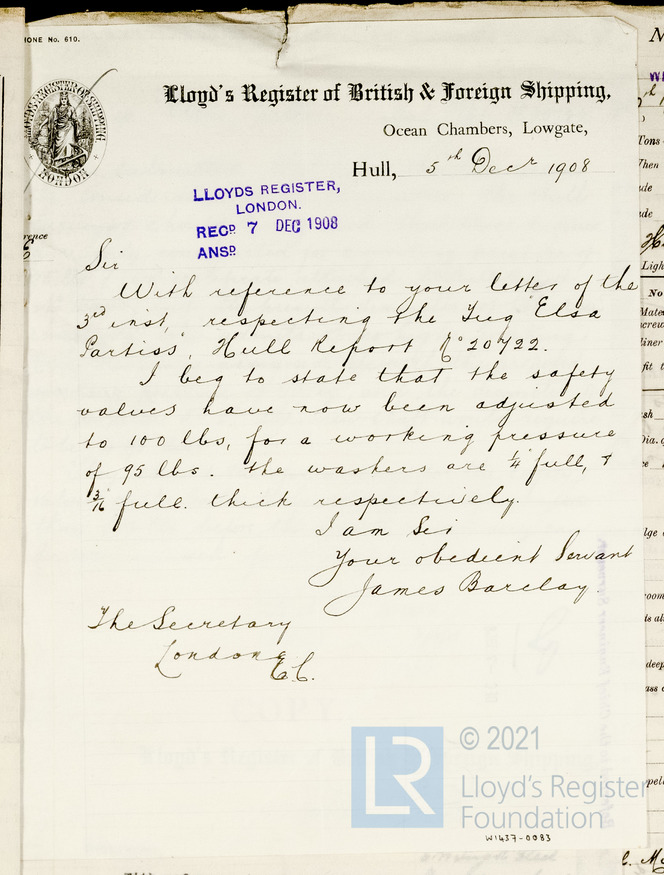 IONE No. 610.
Lloyd's Register of British & Foreign Shipping,
Ocean Chambers, Lowgate,
Hull, 5th Decr 1908
LLOYDS REGISTER,
LONDON.
RECD 7 DEC 1908
ANSD
Sir
With reference to your letter of the
3rd inst, respecting the Tug "Elsa
Partiss", Hull Report No 20722.
I beg to state that the safety
valves have now been adjusted
to 100 lbs, for a working pressure
of 95 lbs. the washers are 1/4 full, &
3/16 full. thick respectively.
I am Sir
Your obedient Servant
James Barclay.
The Secretary
London E.C.
LR
© 2021
Lloyd's Register
Foundation
W1437-0083